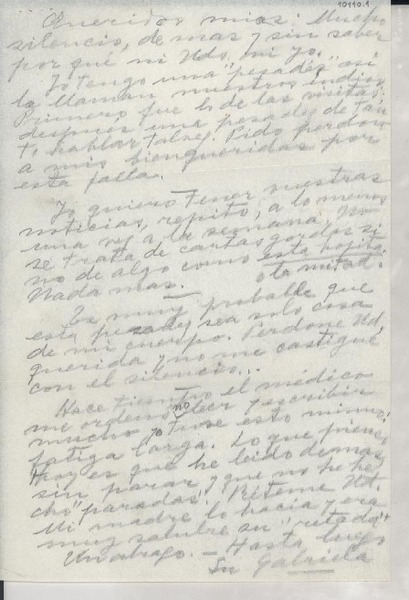 10110.1
Queridos mios: Mucho
silencio, de mas y sin saber
por qué ni Uds, ni yo.
Yo tengo una "pesadés" así
la llaman nuestros indios.
Primero fue lo de las visitas;
despues una pesadés de tan-
to hablar talvez. Pido perdon
a mis bienqueridas por
esta falla.
Yo quiero tener nuestras
noticias, repito, a lo menos
una vez a la semana. No
se trata de cartas gordas si
no de algo como esta hojita
o la mitad.
Nada mas.
Es muy probable que
esta pesadez sea solo cosa
de mi cuerpo. Perdone Ud,
querida y no me castigue
con el silencio...
Hace tiempo el médico
me ordenó no leer y escribir
mucho yo tuve esto mismo:
fatiga larga. Lo que pienso
hoy es que he leido demas,
sin parar y que no he he-
cho "paradas". Réteme Ud
Mi madre lo hacia y era
muy salubre su "retada"
Un abrazo. - Hasta luego
Su Gabriela